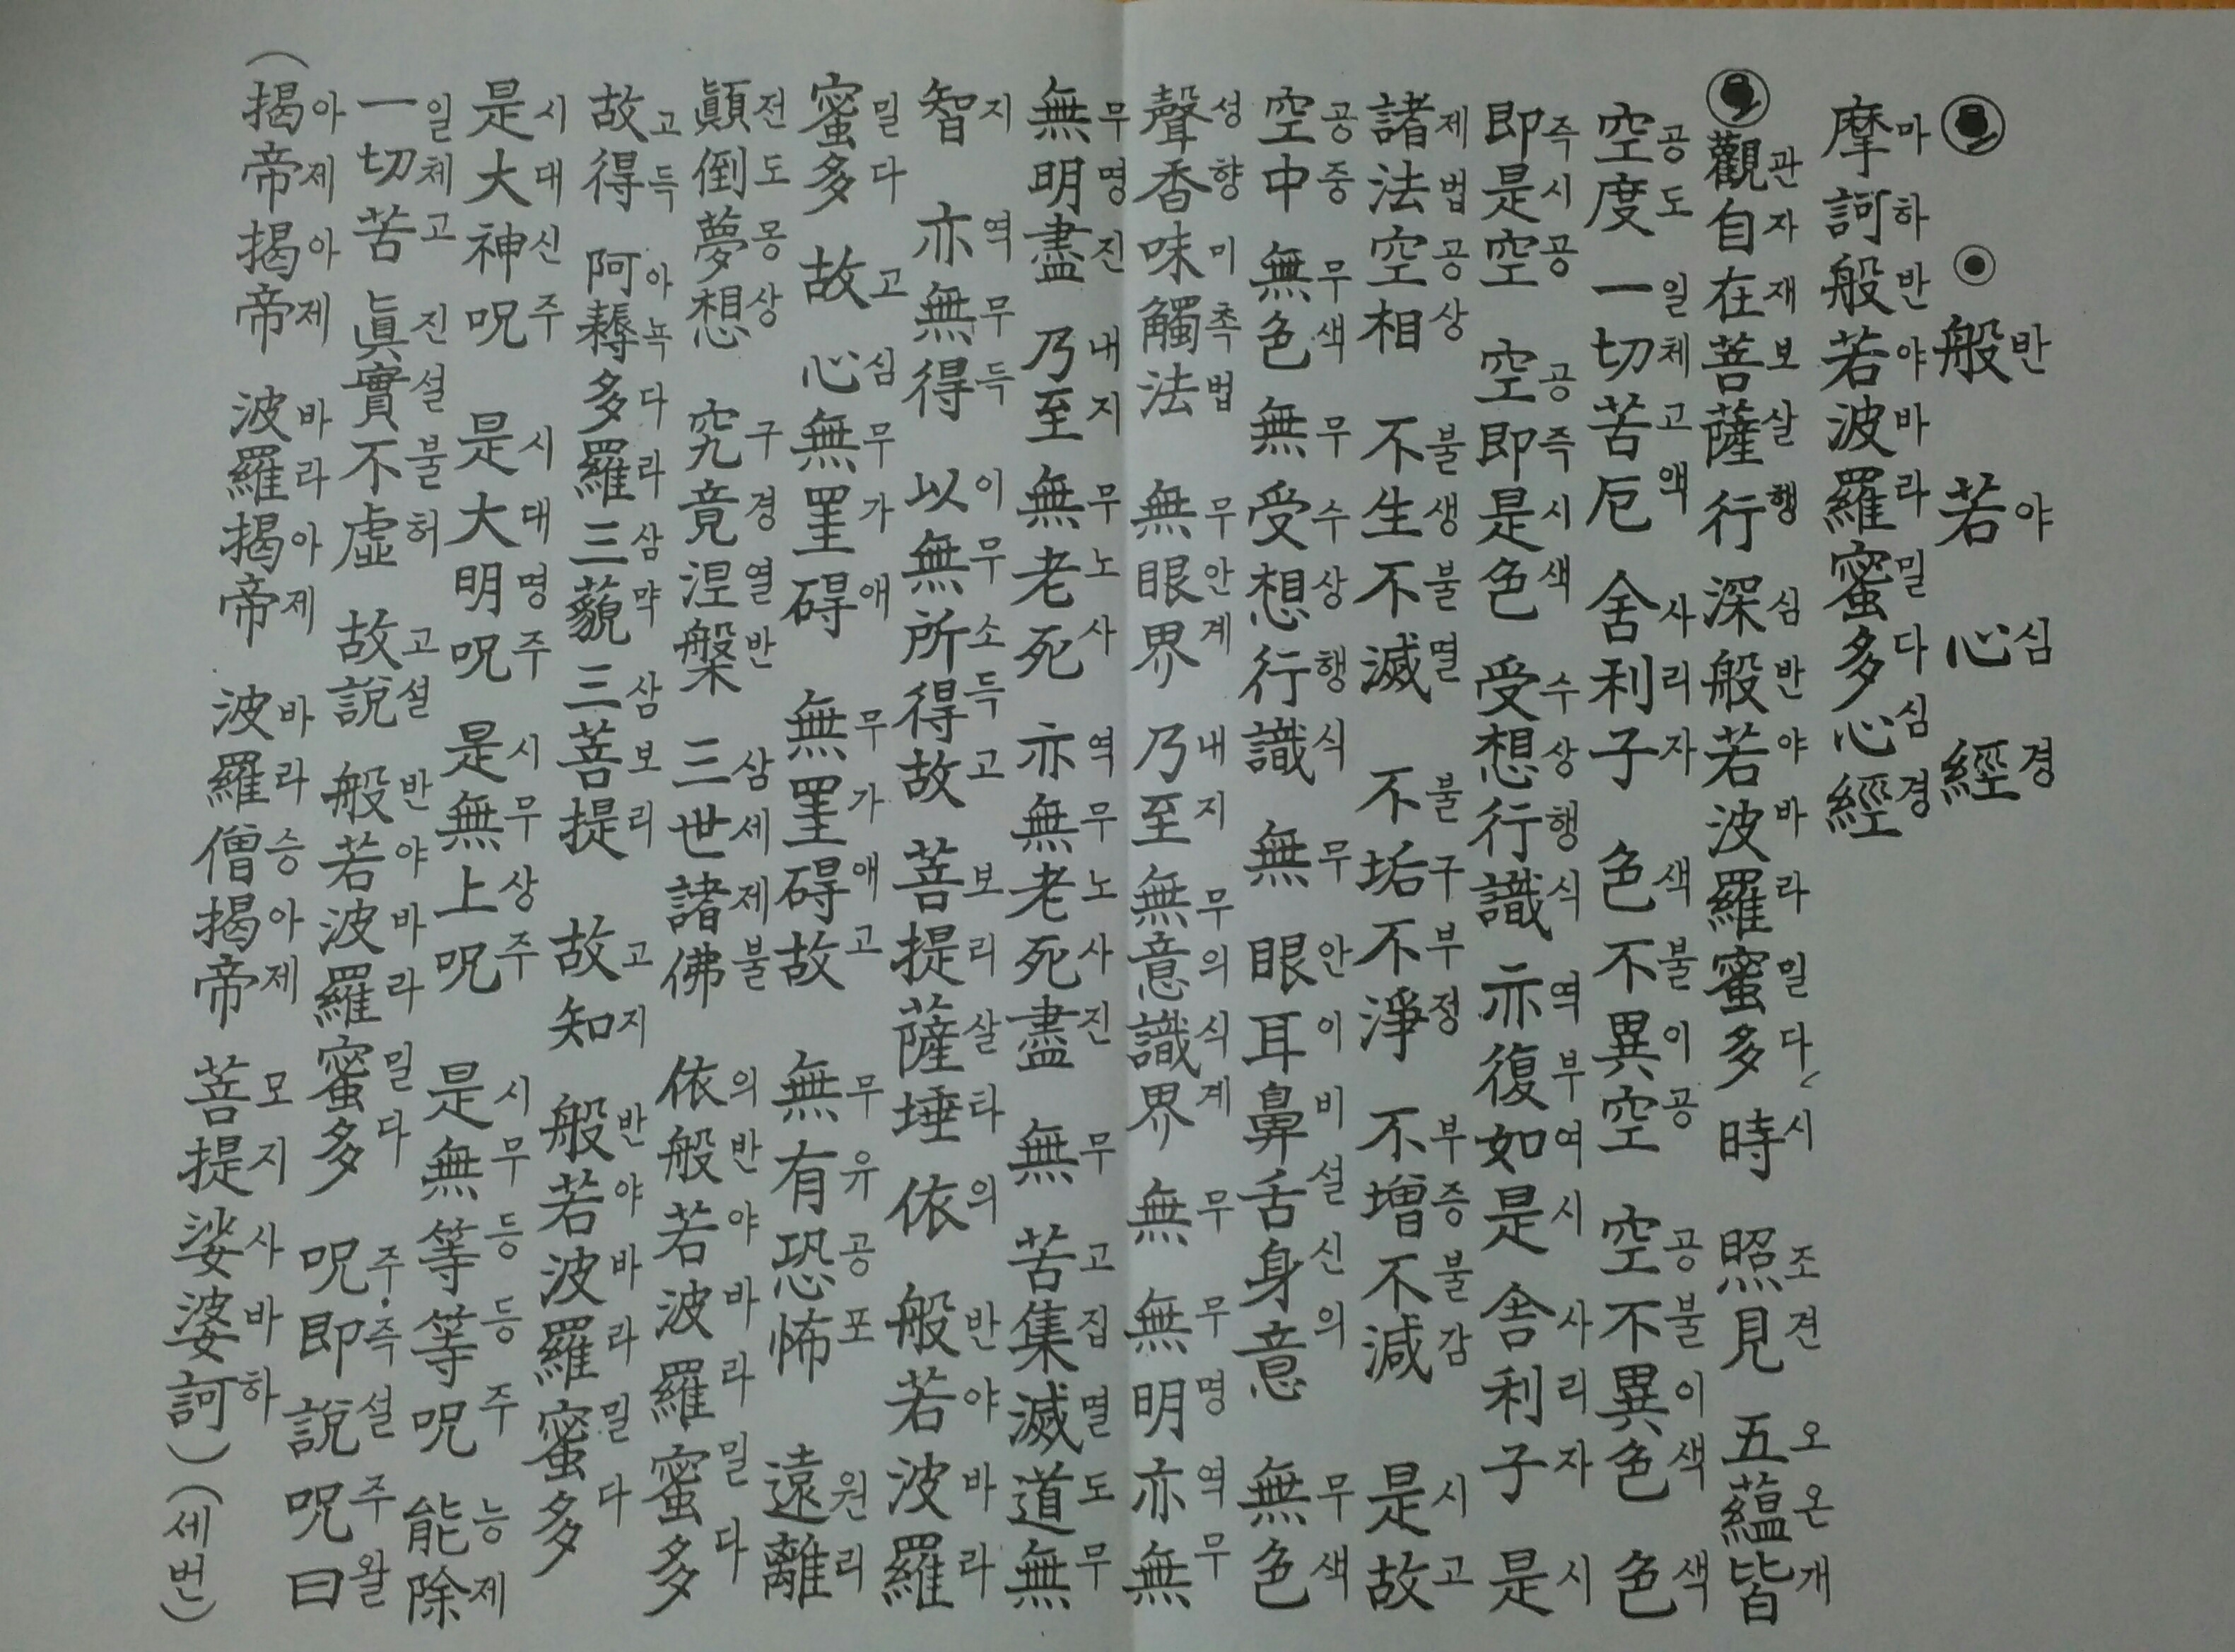 般若心經
반야심경
摩訶般若波羅蜜多心經
마하반야바라밀다심경
觀自在菩薩行 深般若波羅蜜多 時 照見 五蘊皆
관자재보살행 심반야바라밀다 시 조견 오온개
空度 一切苦厄 舍利子 色不異空 空不異色 色
공도 일체고액 사리자 색불이공 공불이색 색
即是空 空即是色 受想行識 亦復如是 舍利子 是
즉시공 공즉시색 수상행식 역부여시 사리자 시
諸法空相 不生不滅 不垢不淨 不增不減 是故
제법공상 불생불멸 불구부정 부증불감 시고
空中 無色 無受想行識 無 眼耳鼻舌身意 無色
공중 무색 무수상행식 무 안이비설신의 무색
聲香味觸法 無眼界 乃至 無意識界 無 無明亦無
성향미촉법 무안계 내지 무의식계 무 무명역무
無明盡 乃至 無老死 亦無老死盡 無 苦集滅道無
무명진 내지 무노사 역무노사진 무 고집멸도무
智 亦無得 以無所得故 菩提薩埵 依 般若波羅
지 역무득 이무소득고 보리살타 의 반야바라
蜜多 故 心無罣碍 無罣碍故 無有恐怖 遠離
밀다 고 심무가애 무가애고 무유공포 원리
顚倒夢想 究竟涅槃 三世諸佛 依般若波羅蜜多
전도몽상 구경열반 삼세제불 의반야바라밀다
故得 阿耨多羅三藐三菩提 故知 般若波羅蜜多
고득 아뇩다라삼먁삼보리 고지 반야바라밀다
是大神呪 是大明呪 是無上呪 是無等等呪 能除
시대신주 시대명주 시무상주 시무등등주 능제
一切苦 眞實不虛 故說 般若波羅蜜多 呪即說呪曰
일체고 진설불허 고설 반야바라밀다 주즉설주왈
(揭帝揭帝 波羅揭帝 波羅僧揭帝 菩提娑婆訶)(세번)
아제아제 바라아제 바라승아제 모지사바하